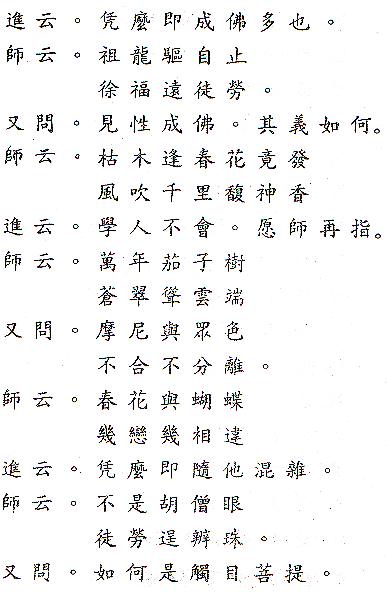 進云。凭麼即成佛多也。
師云。祖龍驅自止
徐福遠徒勞。
又問。見性成佛。其義如何。
師云。枯木逢春花竟發
風吹千里馥神香
進云。學人不會。愿師再指。
師云。萬年茄子樹
蒼翠聳雲端
又問。摩尼與眾色
不合不分離。
師云。春花與蝴蝶
幾戀幾相違
進云。凭麼即隨他混雜。
師云。不是胡僧眼
徒勞逞辨珠。
又問。如何是觸目菩提。